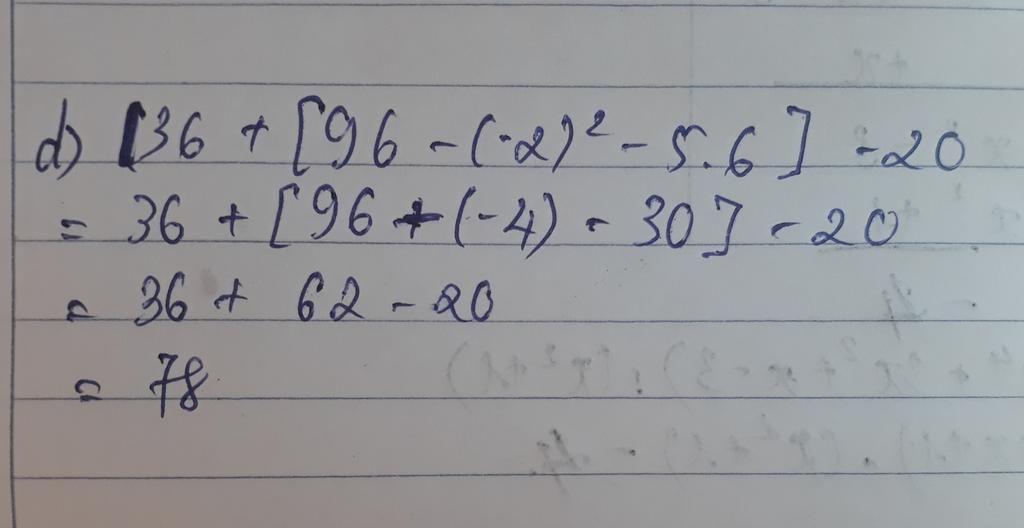 d) 36 + [96 - (-2)² - 5.6] - 20
= 36 + [96 + (-4) - 30] - 20
= 36 + 62 - 20
= 78